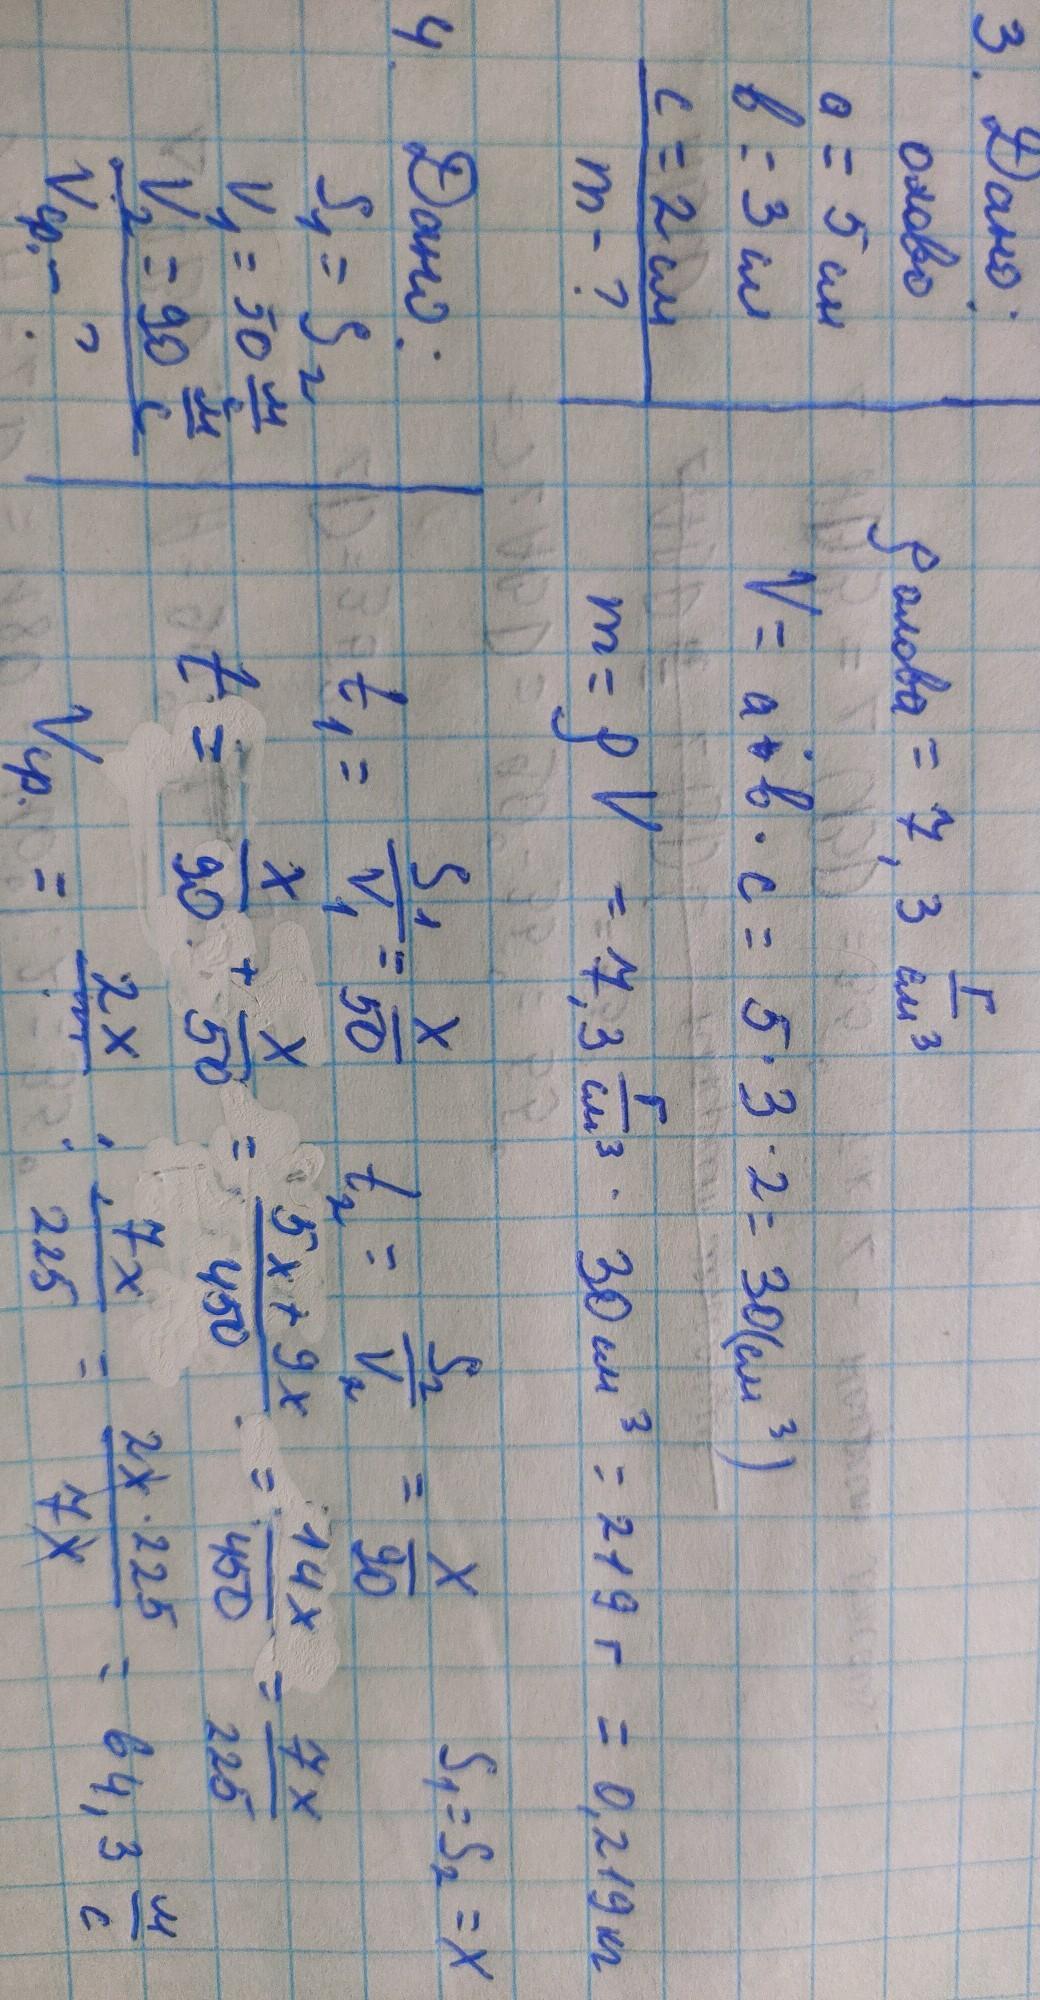 3. Дано:
олово
a = 5 см
b = 3 см
c = 2 см
m - ?
ρ олова = 7,3 г/см³
V = a · b · c = 5 · 3 · 2 = 30 (см³)
m = ρ V = 7,3 г/см³ · 30 см³ = 219 г = 0,219 кг
4. Дано:
S₁ = S₂
V₁ = 50 м/с
V₂ = 90 м/с
Vср. - ?
S₁ = S₂ = x
t₁ = S₁/V₁ = x/50 t₂ = S₂/V₂ = x/90
t = x/90 + x/50 = (5x + 9x)/450 = 14x/450 = 7x/225
Vср. = 2x : 7x/225 = (2x · 225)/7x = 64,3 м/с